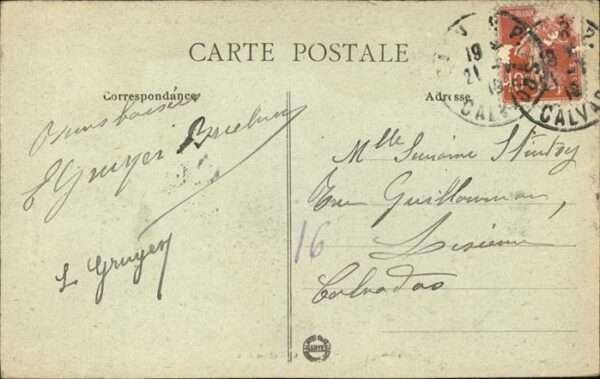 CARTE POSTALE
Correspondance
Adresse
Bons baisers
E Gruyer
L Gruyer
Mlle Suzanne
Rue Guillonneau,
Lisieux
Calvados
16
CALVADOS
19
21